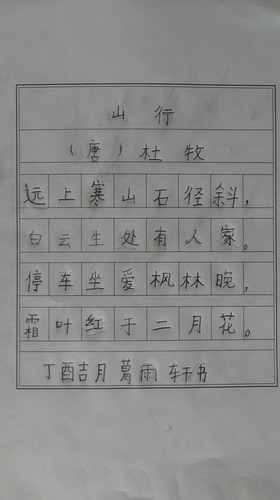 山行
（唐）杜牧
远上寒山石径斜，
白云生处有人家。
停车坐爱枫林晚，
霜叶红于二月花。
丁酉吉月葛雨轩书